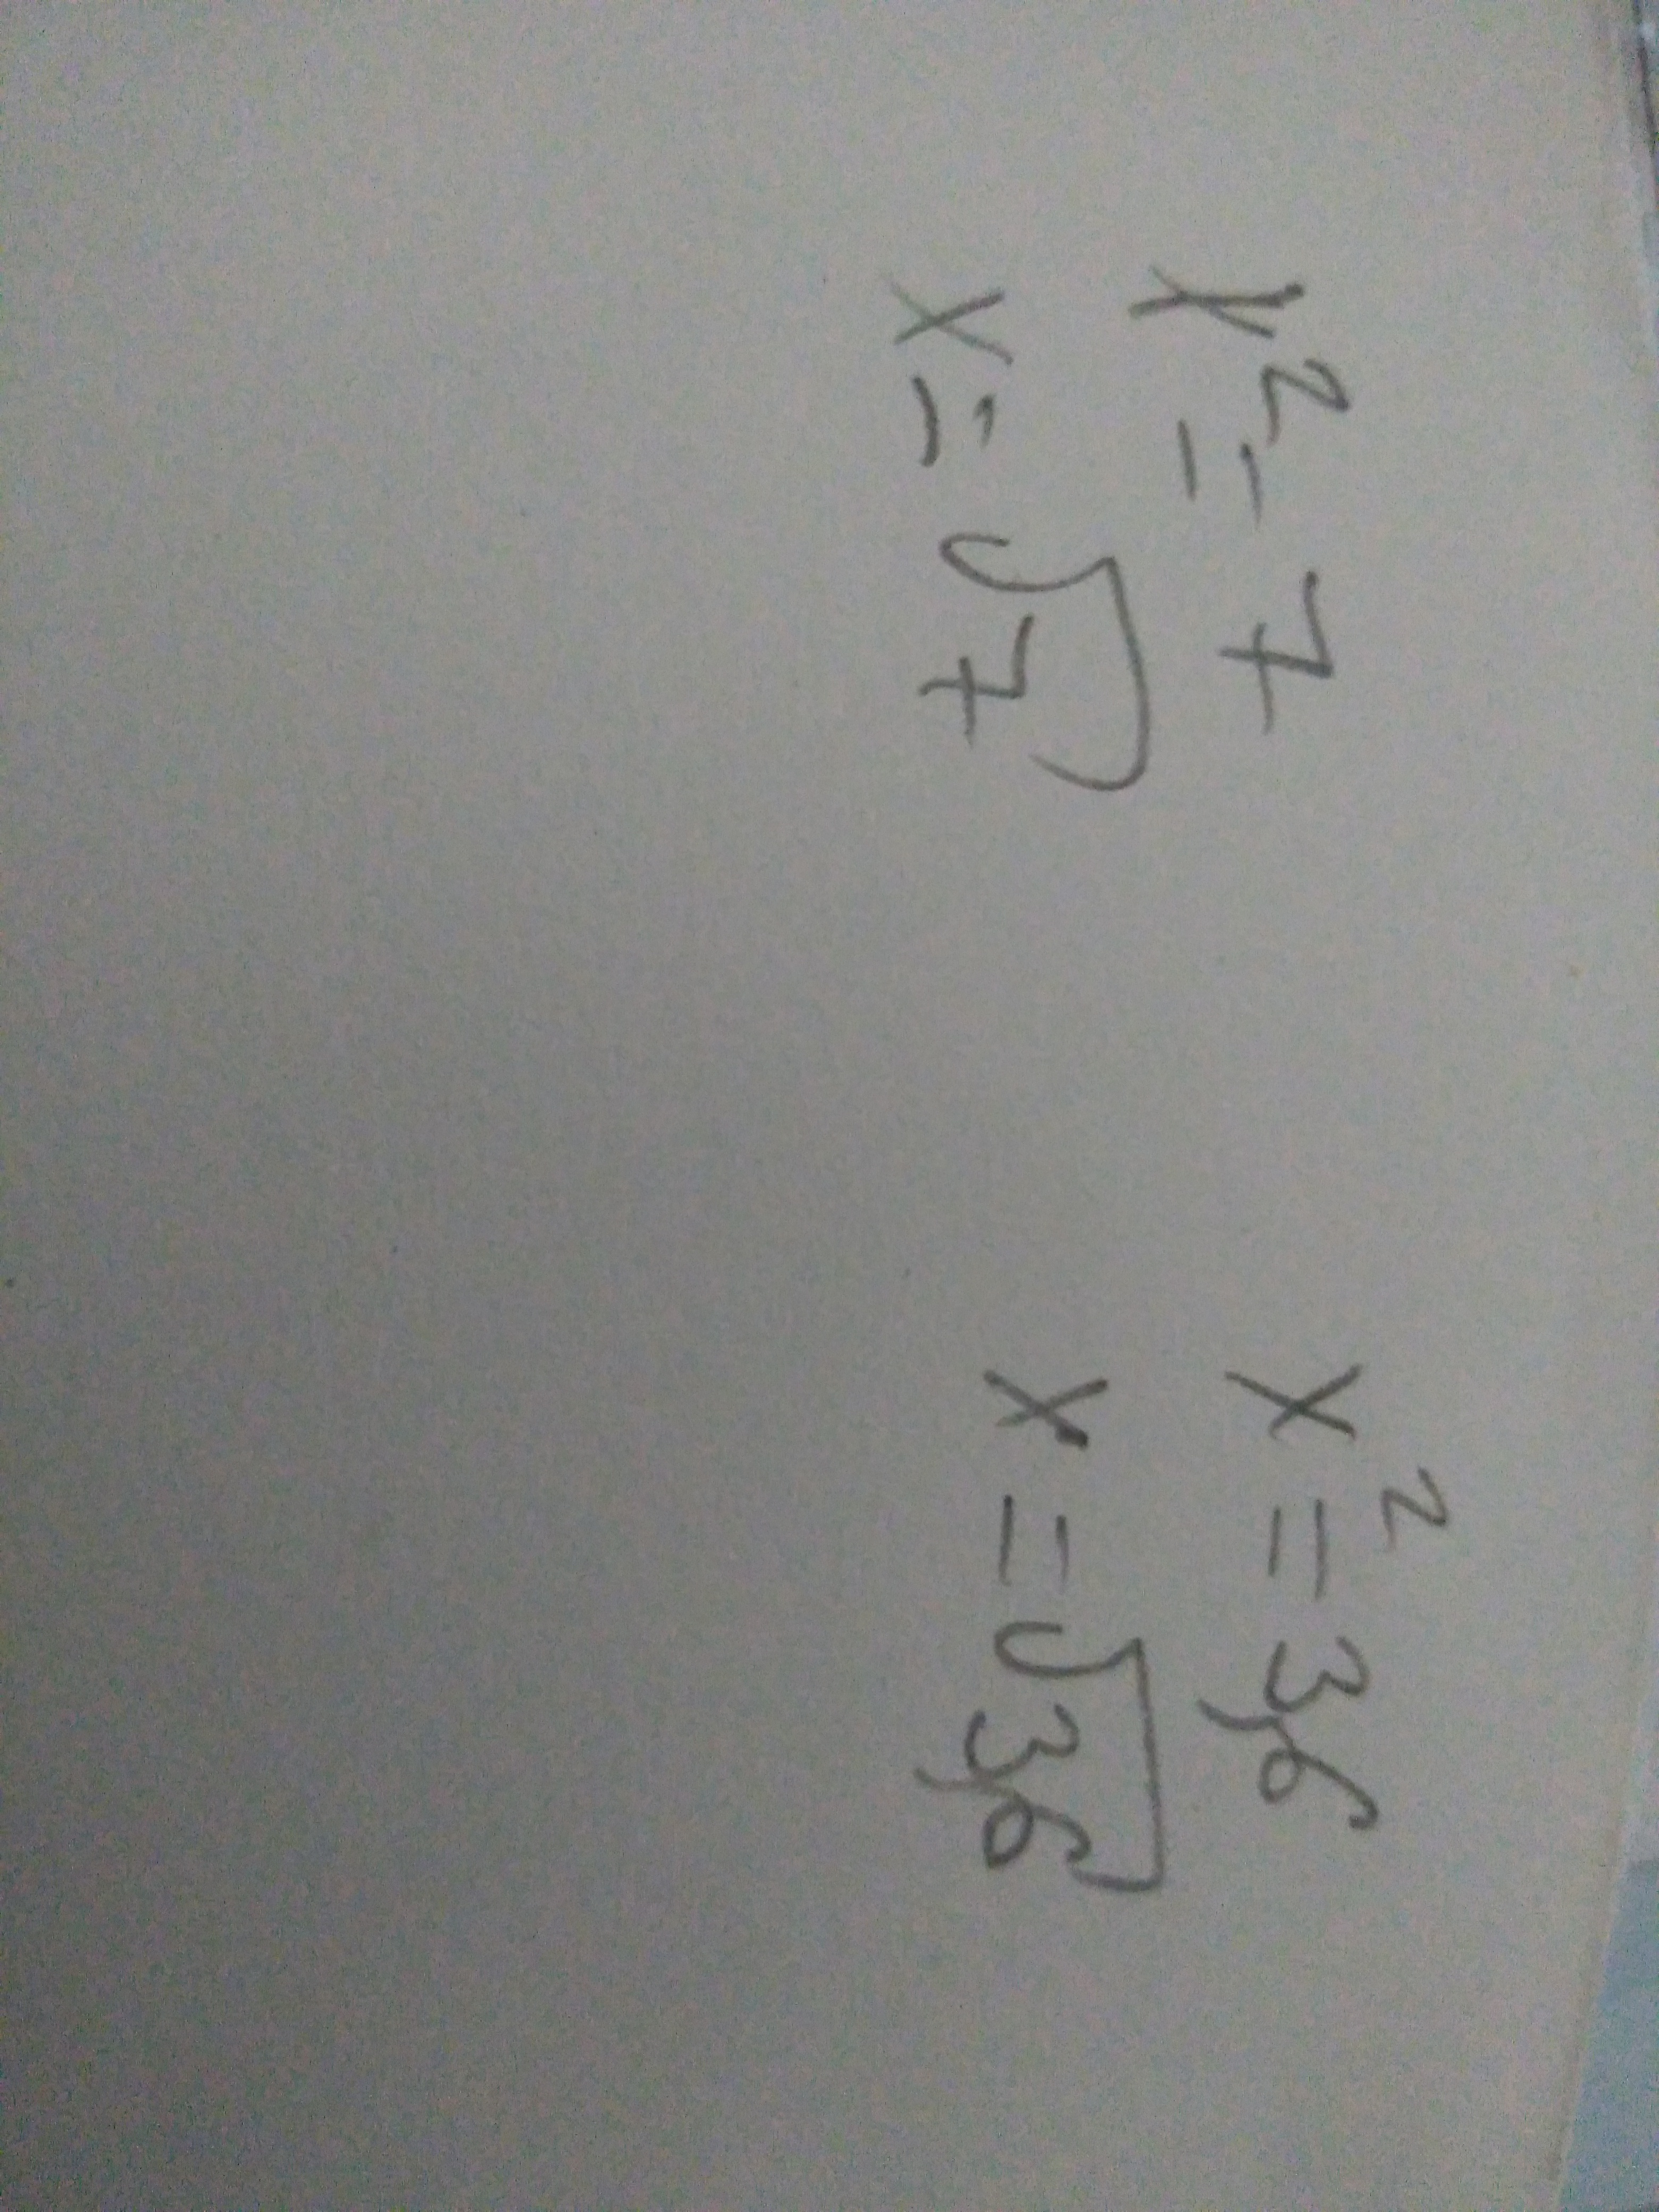 x² = 7
x = √7
x² = 3,6
x = √3,6